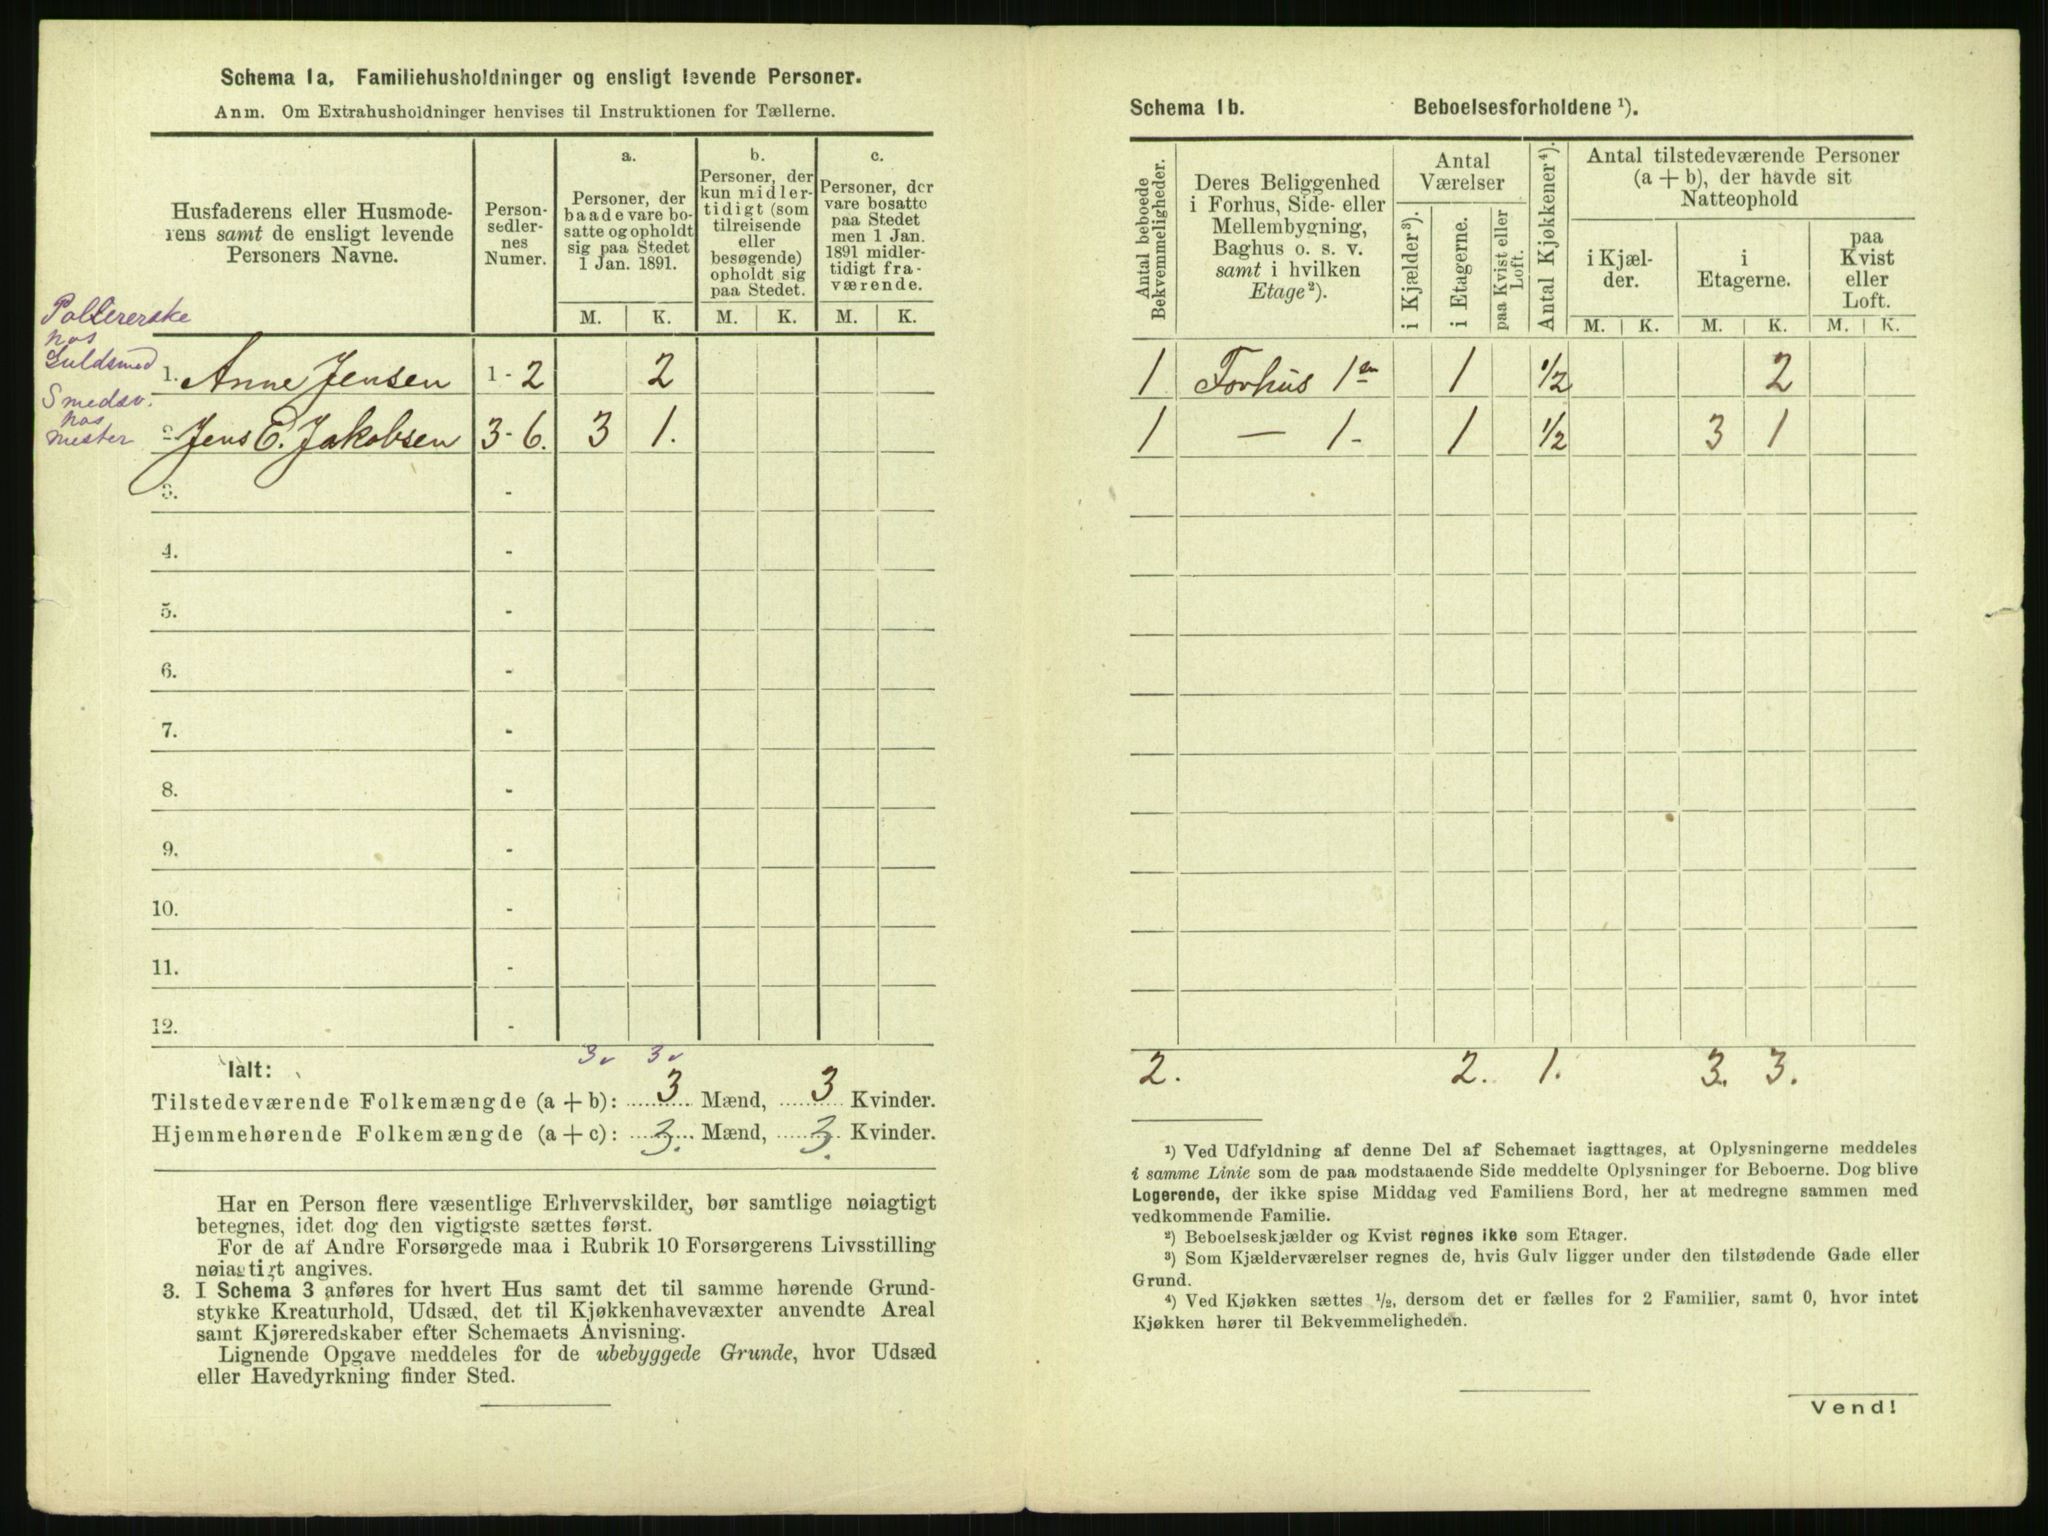 Schema 1a. Familiehusholdninger og ensligt levende Personer.
Anm. Om Extrahusholdninger henvises til Instruktionen for Tællerne.
Husfaderens eller Husmode-
rens samt de ensligt levende
Personers Navne.
Person-
sedler-
nes
Numer.
a.
Personer, der
baade vare bo-
satte og opholdt
sig paa Stedet
1 Jan. 1891.
b.
Personer, der
kun midler-
tidigt (som
tilreisende
eller
besøgende)
opholdt sig
paa Stedet.
c.
Personer, der
vare bosatte
paa Stedet
men 1 Jan.
1891 midler-
tidigt fra-
værende.
M. K. M. K. M. K.
Pollererske
hos
Guldsmed
1. Anne Jensen 1 - 2 2
Smedsv.
hos
mester
2. Jens E. Jakobsen 3 - 6. 3 1.
3. -
4. -
5. -
6. -
7. -
8. -
9. -
10. -
11. -
12. -
3v 3v
Ialt:
Tilstedeværende Folkemængde (a + b): 3 Mænd, 3 Kvinder.
Hjemmehørende Folkemængde (a + c): 3. Mænd, 3. Kvinder.
Har en Person flere væsentlige Erhvervskilder, bør samtlige nøiagtigt
betegnes, idet dog den vigtigste sættes først.
For de af Andre Forsørgede maa i Rubrik 10 Forsørgerens Livsstilling
nøiagtigt angives.
3. I Schema 3 anføres for hvert Hus samt det til samme hørende Grund-
stykke Kreaturhold, Udsæd, det til Kjøkkenhavevæxter anvendte Areal
samt Kjøreredskaber efter Schemaets Anvisning.
Lignende Opgave meddeles for de ubebyggede Grunde, hvor Udsæd
eller Havedyrkning finder Sted.
Schema 1b. Beboelsesforholdene ¹).
Antal beboede
Bekvemmeligheder.
Deres Beliggenhed
i Forhus, Side- eller
Mellembygning,
Baghus o. s. v.
samt i hvilken
Etage²).
Antal
Værelser
i Kjælder³).
i Etagerne.
paa Kvist eller
Loft.
Antal Kjøkkener⁴).
Antal tilstedeværende Personer
(a + b), der havde sit
Natteophold
i Kjæl-
der.
i
Etagerne.
paa
Kvist
eller
Loft.
M. K. M. K. M. K.
1 Forhus 1en 1 1/2 2
1 — 1 - 1 1/2 3 1
2. 2. 1. 3. 3.
¹) Ved Udfyldning af denne Del af Schemaet iagttages, at Oplysningerne meddeles
i samme Linie som de paa modstaaende Side meddelte Oplysninger for Beboerne. Dog blive
Logerende, der ikke spise Middag ved Familiens Bord, her at medregne sammen med
vedkommende Familie.
²) Beboelseskjælder og Kvist regnes ikke som Etager.
³) Som Kjælderværelser regnes de, hvis Gulv ligger under den tilstødende Gade eller
Grund.
⁴) Ved Kjøkken sættes ½, dersom det er fælles for 2 Familier, samt 0, hvor intet
Kjøkken hører til Bekvemmeligheden.
Vend!